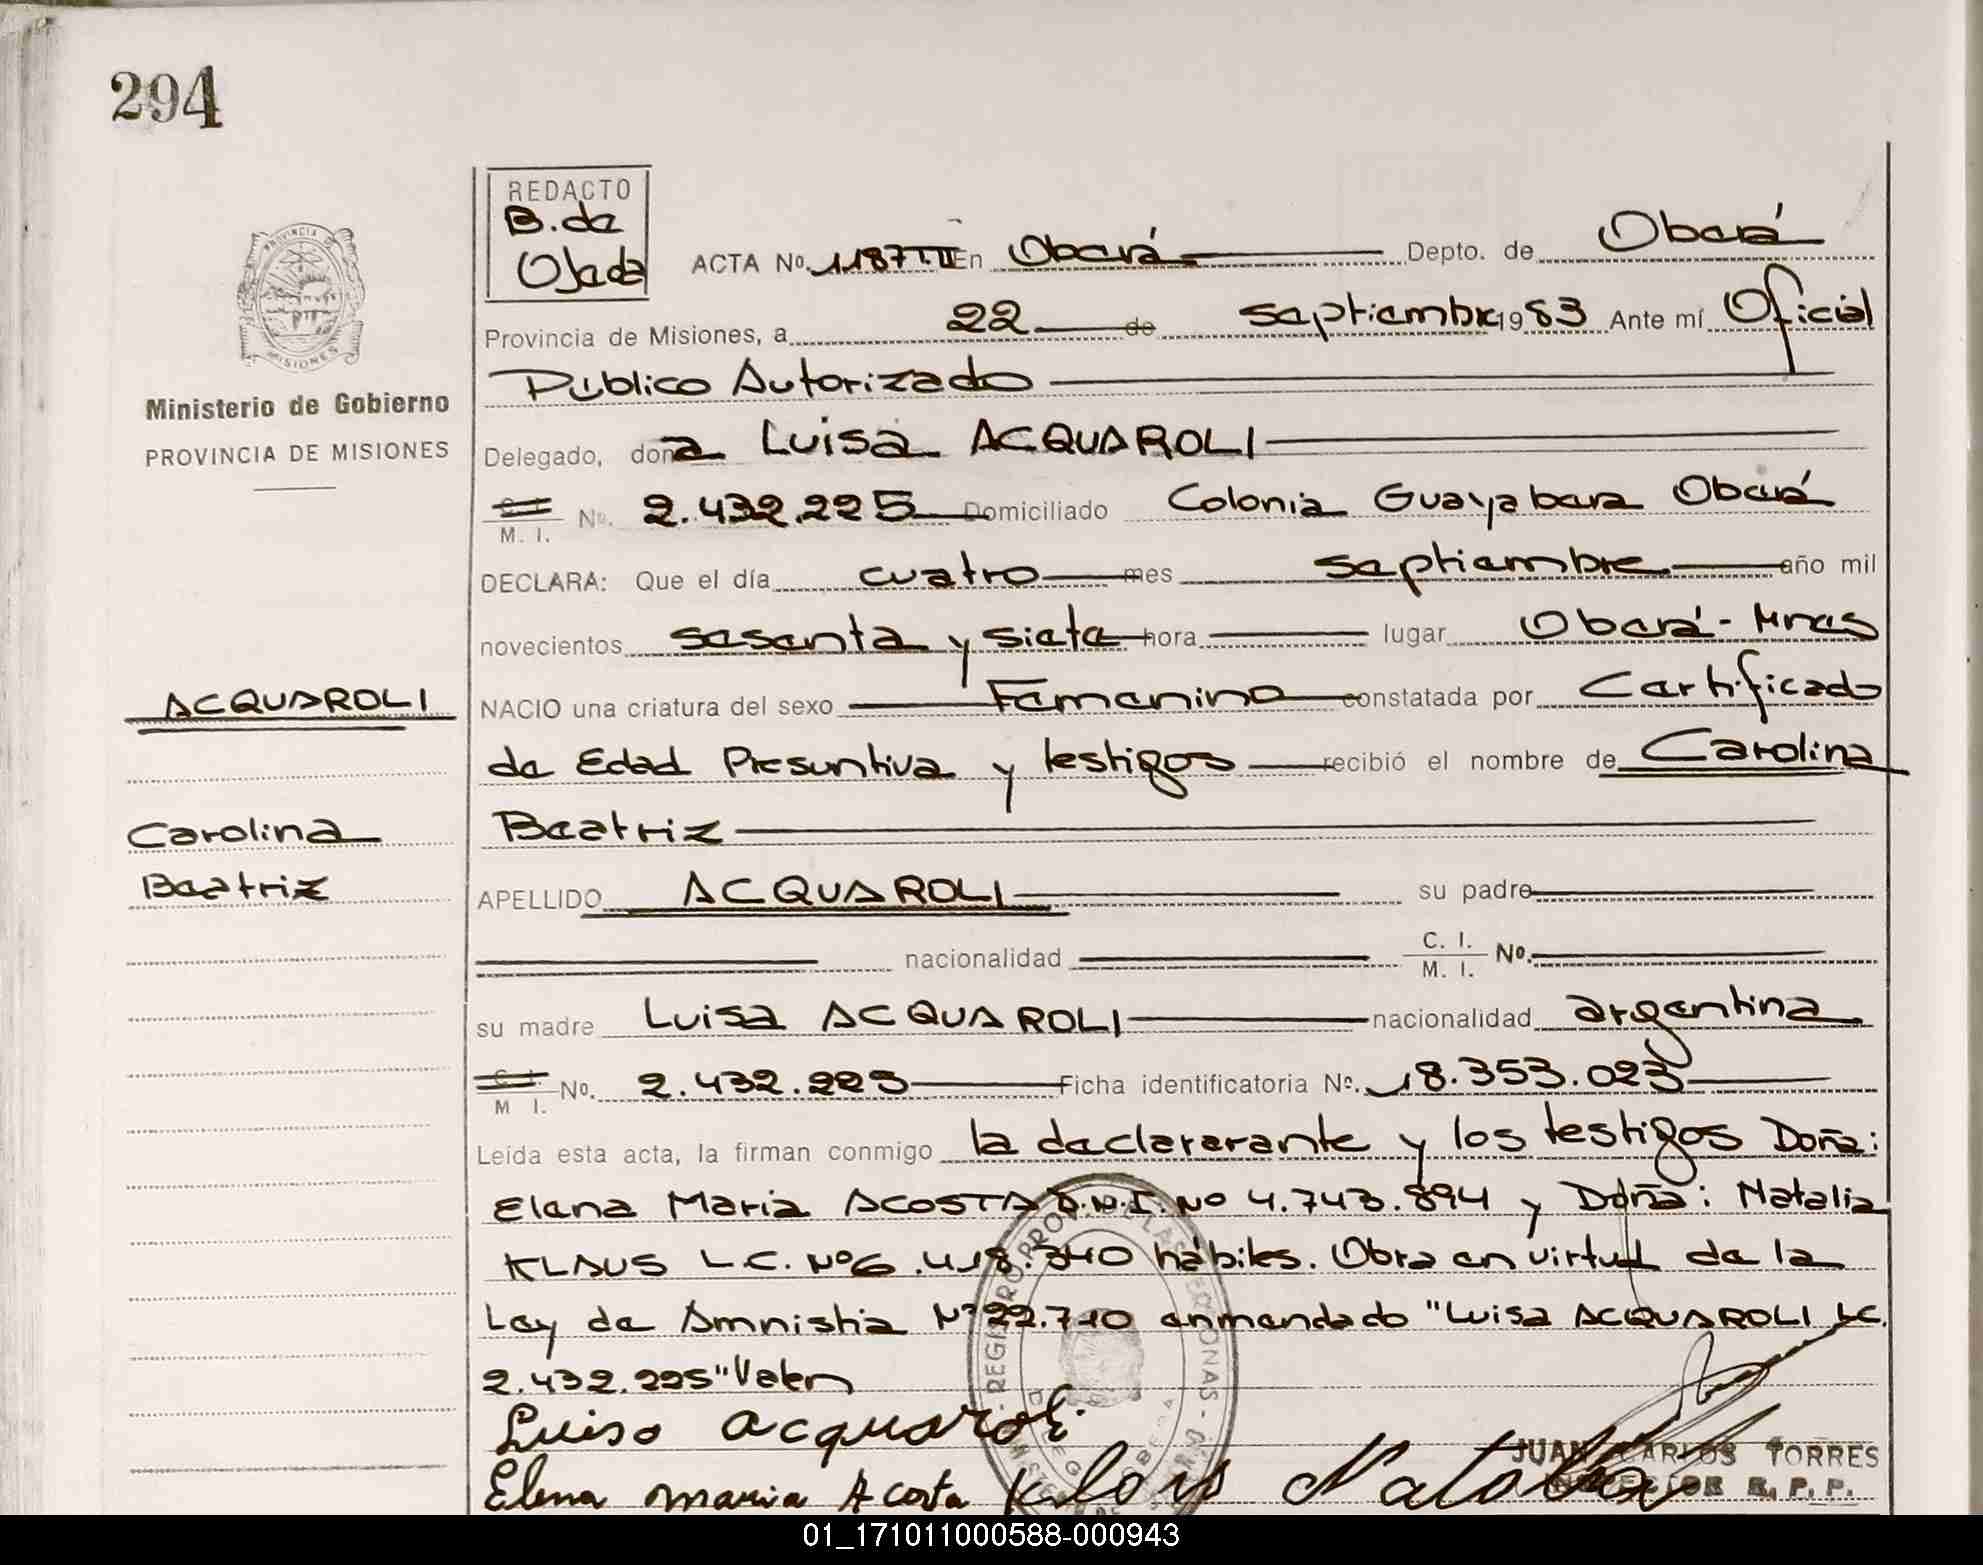 294
REDACTO
B. de
Ojeda
ACTA No. 1187T.II En Oberá Depto. de Oberá
PROVINCIA DE
MISIONES
Provincia de Misiones, a 22 de septiembre 1983 Ante mí Oficial
Ministerio de Gobierno
PROVINCIA DE MISIONES
Público Autorizado
Delegado, doña Luisa ACQUAROLI
C. I.
M. I. No. 2.432.225 Domiciliado Colonia Guayabera Oberá
DECLARA: Que el día cuatro mes septiembre año mil
novecientos sesenta y siete hora lugar Oberá - Mnes
ACQUAROLI
NACIO una criatura del sexo Femenino constatada por Certificado
de Edad Presuntiva y testigos recibió el nombre de Carolina
Carolina
Beatriz
Beatriz
APELLIDO ACQUAROLI su padre
nacionalidad C. I.
M. I. No.
su madre Luisa ACQUAROLI nacionalidad argentina
M I. No. 2.432.225 Ficha identificatoria No. 18.353.023
Leída esta acta, la firman conmigo la declararante y los testigos Doña:
Elena Maria ACOSTA D.N.I. No 4.743.894 y Doña: Natalia
KLAUS L.C. No 6.418.340 hábiles. Obra en virtud de la
Ley de Amnistia No 22.710 enmendado "Luisa ACQUAROLI LC.
2.432.225" Valen
Luisa acquaroli
Elena maria Acosta Klaus Natalia
JUAN CARLOS TORRES
INSPECTOR R. P. P.
01_171011000588-000943